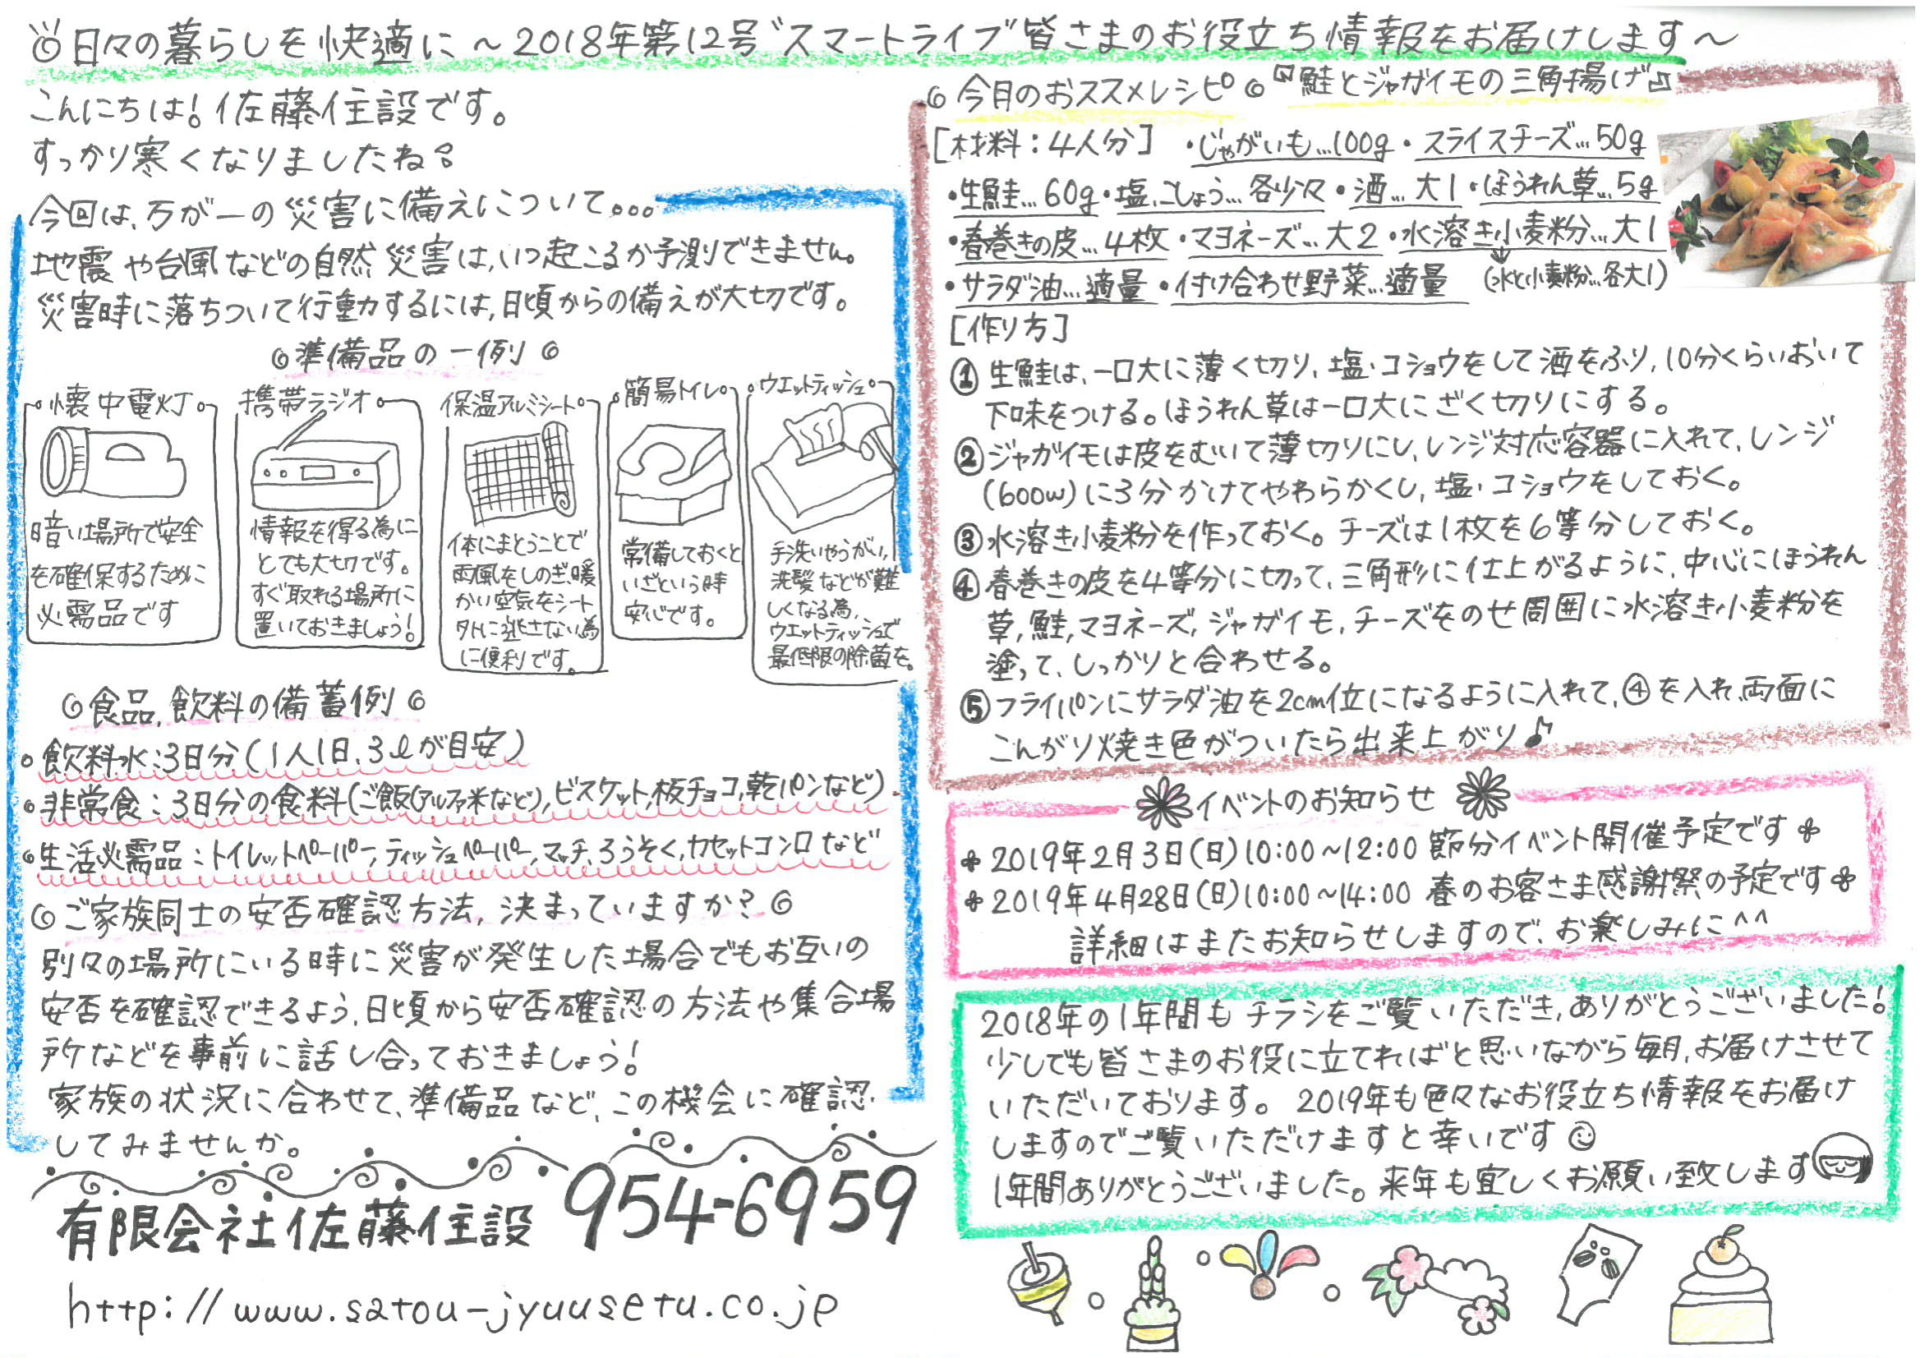 日々の暮らしを快適に～2018年第12号"スマートライブ"皆さまのお役立ち情報をお届けします～
こんにちは!佐藤住設です。
すっかり寒くなりましたね
今回は、万が一の災害に備えについて。。。
地震や台風などの自然災害は、いつ起こるか予測できません。
災害時に落ちついて行動するには、日頃からの備えが大切です。
◎準備品の一例◎
懐中電灯
暗い場所で安全
を確保するために
必需品です
携帯ラジオ
情報を得る為に
とても大切です。
すぐ取れる場所に
置いておきましょう!
保温アルミシート
体にまとうことで
雨風をしのぎ、暖
かい空気をシート
外に逃さない為
に便利です。
簡易トイレ
常備しておくと
いざという時
安心です。
ウエットティッシュ
手洗いやうがい、
洗髪などが難
しくなる為、
ウエットティッシュで
最低限の除菌を。
◎食品、飲料の備蓄例◎
・飲料水:3日分(1人1日、3ℓが目安)
・非常食:3日分の食料(ご飯(アルファ米など),ビスケット,板チョコ,乾パンなど)
・生活必需品:トイレットペーパー,ティッシュペーパー,マッチ,ろうそく,カセットコンロなど
◎ご家族同士の安否確認方法、決まっていますか?◎
別々の場所にいる時に災害が発生した場合でもお互いの
安否を確認できるよう、日頃から安否確認の方法や集合場
所などを事前に話し合っておきましょう!
家族の状況に合わせて、準備品など、この機会に確認
してみませんか。
有限会社佐藤住設 954-6959
http://www.satou-jyuusetu.co.jp
◎今月のおススメレシピ◎『鮭とジャガイモの三角揚げ』
[材料:4人分] ・じゃがいも…100g・スライスチーズ…50g
・生鮭…60g・塩、こしょう…各少々・酒…大1・ほうれん草…5g
・春巻きの皮…4枚・マヨネーズ…大2・水溶き小麦粉…大1
・サラダ油…適量・付け合わせ野菜…適量 (水と小麦粉…各大1)
[作り方]
①生鮭は、一口大に薄く切り、塩・コショウをして酒をふり、10分くらいおいて
下味をつける。ほうれん草は一口大にざく切りにする。
②ジャガイモは皮をむいて薄切りにし、レンジ対応容器に入れて、レンジ
(600w)に3分かけてやわらかくし、塩・コショウをしておく。
③水溶き小麦粉を作っておく。チーズは1枚を6等分しておく。
④春巻きの皮を4等分に切って、三角形に仕上がるように、中心にほうれん
草,鮭,マヨネーズ,ジャガイモ,チーズをのせ周囲に水溶き小麦粉を
塗って、しっかりと合わせる。
⑤フライパンにサラダ油を2cm位になるように入れて、④を入れ、両面に
こんがり焼き色がついたら出来上がり♪
イベントのお知らせ
2019年2月3日(日)10:00～12:00 節分イベント開催予定です
2019年4月28日(日)10:00～14:00 春のお客さま感謝祭の予定です
詳細はまたお知らせしますので、お楽しみに^^
2018年の1年間もチラシをご覧いただき、ありがとうございました!
少しでも皆さまのお役に立てればと思いながら毎月、お届けさせて
いただいております。2019年も色々なお役立ち情報をお届け
しますのでご覧いただけますと幸いです☺
1年間ありがとうございました。来年も宜しくお願い致します